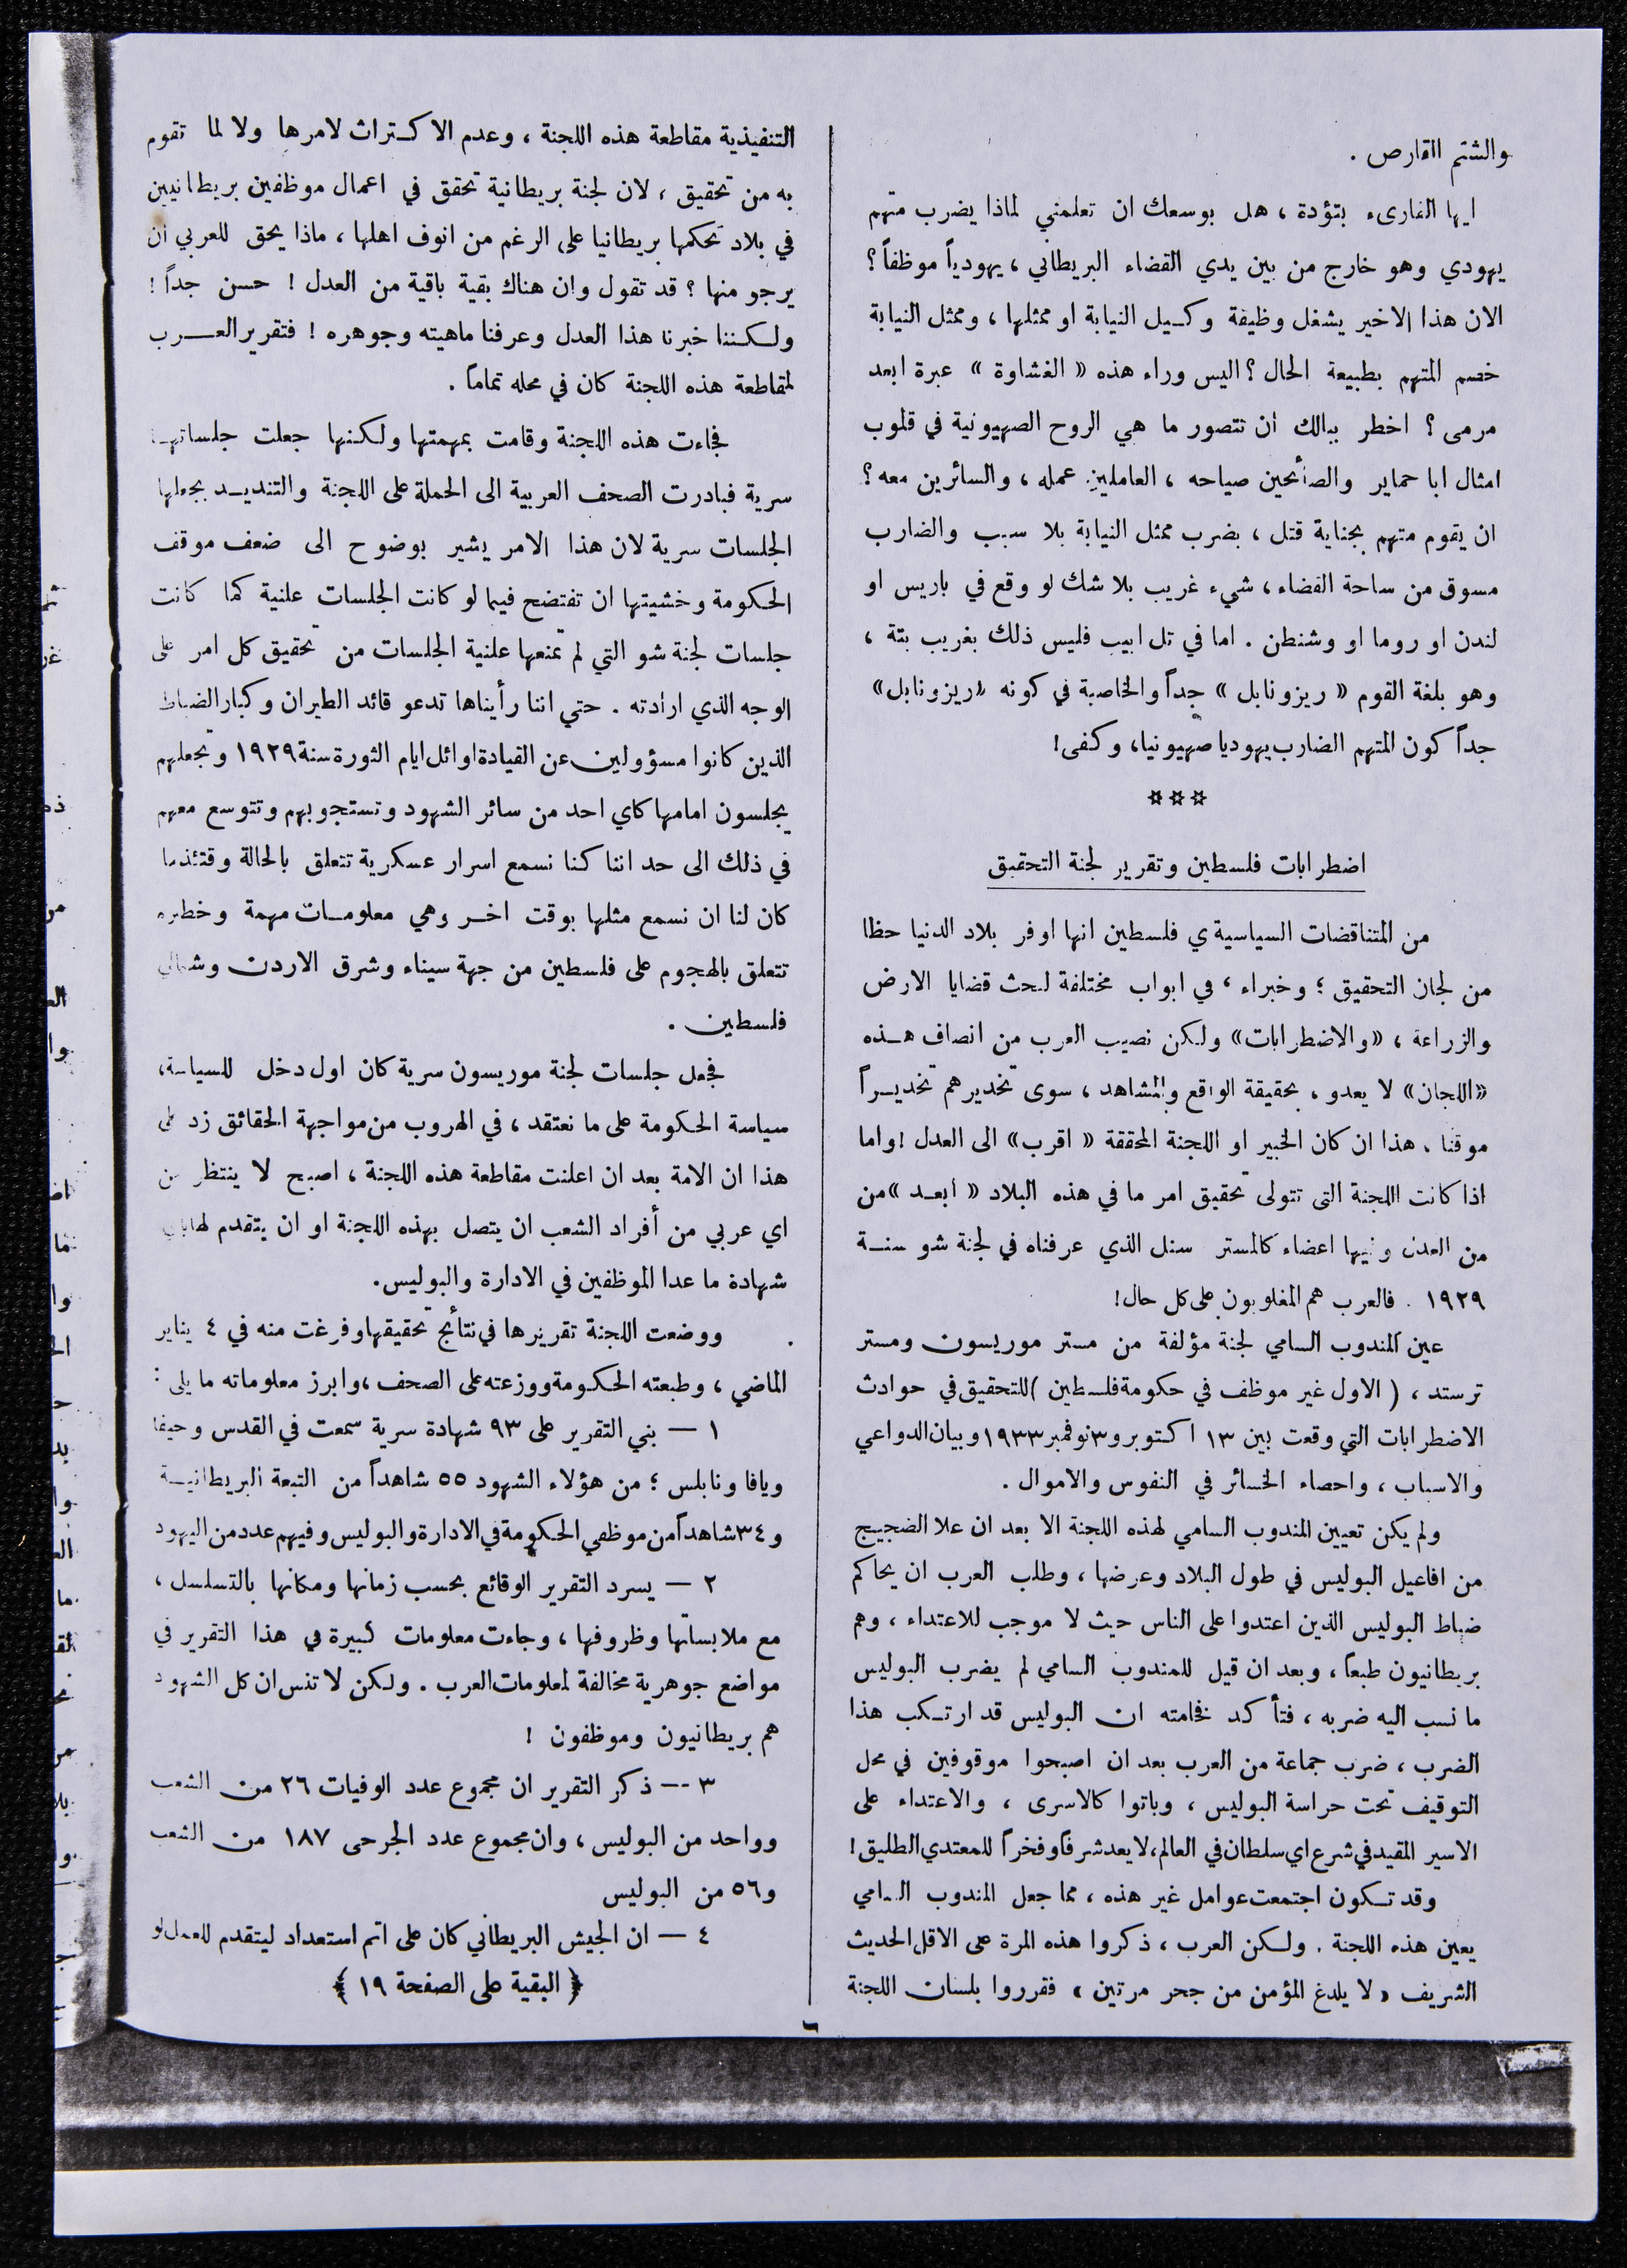 والشتم القارص .
ايها القارىء بتؤدة ، هل بوسعك ان تعلمني لماذا يضرب متهم
يهودي وهو خارج من بين يدي القضاء البريطاني ، يهودياً موظفاً ؟
الان هذا الاخير يشغل وظيفة وكيل النيابة او ممثلها ، وممثل النيابة
خصم المتهم بطبيعة الحال ؟ اليس وراء هذه « الغشاوة » عبرة ابعد
مرمى ؟ اخطر ببالك ان تتصور ما هي الروح الصهيونية في قلوب
امثال ابا حماير والصائحين صياحه ، العاملين عمله ، والسائرين معه ؟
ان يقوم متهم بجناية قتل ، بضرب ممثل النيابة بلا سبب والضارب
مسوق من ساحة القضاء ، شيء غريب بلا شك لو وقع في باريس او
لندن او روما او وشنطن . اما في تل ابيب فليس ذلك بغريب بتة ،
وهو بلغة القوم « ريزونابل » جداً والخاصية في كونه «ريزونابل»
جداً كون المتهم الضارب يهوديا صهيونيا، وكفى!
☆☆☆
اضطرابات فلسطين وتقرير لجنة التحقيق
من المتناقضات السياسية ي فلسطين انها اوفر بلاد الدنيا حظا
من لجان التحقيق ؛ وخبراء ، في ابواب مختلفة لبحث قضايا الارض
والزراعة ، «والاضطرابات» ولكن نصيب العرب من انصاف هذه
«اللجان» لا يعدو ، بحقيقة الواقع والمشاهد ، سوى تخديرهم تخديراً
موقتا . هذا ان كان الخبير او اللجنة المحققة « اقرب» الى العدل ! واما
اذا كانت اللجنة التى تتولى تحقيق امر ما في هذه البلاد « ابعد »من
من العدل وفيها اعضاء كالمستر سنل الذي عرفناه في لجنة شو سنة
١٩٢٩ . فالعرب هم المغلوبون على كل حال!
عين المندوب السامي لجنة مؤلفة من مستر موريسون ومستر
ترستد ، ( الاول غير موظف في حكومة فلسطين )للتحقيق في حوادث
الاضطرابات التي وقعت بين ١٣ اكتوبر و٣ نوفمبر ١٩٣٣ وبيان الدواعي
والاسباب ، واحصاء الخسائر في النفوس والاموال .
ولم يكن تعيين المندوب السامي لهذه اللجنة الا بعد ان علا الضجيج
من افاعيل البوليس في طول البلاد وعرضها ، وطلب العرب ان يحاكم
ضباط البوليس الذين اعتدوا على الناس حيث لا موجب للاعتداء ، وهم
بريطانيون طبعاً ، وبعد ان قيل للمندوب السامي لم يضرب البوليس
ما نسب اليه ضربه ، فتأكد فخامته ان البوليس قد ارتكب هذا
الضرب ، ضرب جماعة من العرب بعد ان اصبحوا موقوفين في محل
التوقيف تحت حراسة البوليس ، وباتوا كالاسرى ، والاعتداء على
الاسير المقيد في شرع اي سلطان في العالم، لا يعد شرفاً وفخراً للمعتدي الطليق !
وقد تكون اجتمعت عوامل غير هذه ، مما جعل المندوب السامي
يعين هذه اللجنة . ولكن العرب ، ذكروا هذه المرة على الاقل الحديث
الشريف « لا يلدغ المؤمن من جحر مرتين » فقرروا بلسان اللجنة
التنفيذية مقاطعة هذه اللجنة ، وعدم الاكتراث لامرها ولا لما تقوم
به من تحقيق ، لان لجنة بريطانية تحقق في اعمال موظفين بريطانيين
في بلاد تحكمها بريطانيا على الرغم من انوف اهلها ، ماذا يحق للعربي ان
يرجو منها ؟ قد تقول وان هناك بقية باقية من العدل ! حسن جداً !
ولكننا خبرنا هذا العدل وعرفنا ماهيته وجوهره ! فتقرير العرب
لمقاطعة هذه اللجنة كان في محله تماماً .
فجاءت هذه اللجنة وقامت بمهمتها ولكنها جعلت جلساتها
سرية فبادرت الصحف العربية الى الحملة على اللجنة والتنديد بجعلها
الجلسات سرية لان هذا الامر يشير بوضوح الى ضعف موقف
الحكومة وخشيتها ان تفتضح فيما لو كانت الجلسات علنية كما كانت
جلسات لجنة شو التي لم تمنعها علنية الجلسات من تحقيق كل امر على
الوجه الذي ارادته . حتي اننا رأيناها تدعو قائد الطيران وكبار الضباط
الذين كانوا مسؤولين عن القيادة اوائل ايام الثورة سنة ١٩٢٩ وتجعلهم
يجلسون امامها كاي احد من سائر الشهود وتستجوبهم وتتوسع معهم
في ذلك الى حد اننا كنا نسمع اسرار عسكرية تتعلق بالحالة وقتئذ ما
كان لنا ان نسمع مثلها بوقت اخر وهي معلومات مهمة وخطيرة
تتعلق بالهجوم على فلسطين من جهة سيناء وشرق الاردن وشمالي
فلسطين .
فجعل جلسات لجنة موريسون سرية كان اول دخل للسياسة،
سياسة الحكومة على ما نعتقد ، في الهروب من مواجهة الحقائق زد على
هذا ان الامة بعد ان اعلنت مقاطعة هذه اللجنة ، اصبح لا ينتظر من
اي عربي من أفراد الشعب ان يتصل بهذه اللجنة او ان يتقدم لها باي
شهادة ما عدا الموظفين في الادارة والبوليس.
ووضعت اللجنة تقريرها في نتائج تحقيقها وفرغت منه في ٤ يناير
الماضي ، وطبعته الحكومة ووزعته على الصحف ،وابرز معلوماته ما يلى :
١ — بني التقرير على ٩٣ شهادة سرية سمعت في القدس وحيفا
ويافا ونابلس ؛ من هؤلاء الشهود ٥٥ شاهداً من التبعة البريطانية
و٣٤ شاهداً من موظفي الحكومة في الادارة والبوليس وفيهم عدد من اليهود
٢ — يسرد التقرير الوقائع بحسب زمانها ومكانها بالتسلسل ،
مع ملابساتها وظروفها ، وجاءت معلومات كبيرة في هذا التقرير في
مواضع جوهرية مخالفة لمعلومات العرب . ولكن لا تنس ان كل الشهود
هم بريطانيون وموظفون !
٣ — ذكر التقرير ان مجموع عدد الوفيات ٢٦ من الشعب
وواحد من البوليس ، وان مجموع عدد الجرحى ١٨٧ من الشعب
و٥٦ من البوليس
٤ — ان الجيش البريطاني كان على اتم استعداد ليتقدم للعمل لو
﴿ البقية على الصفحة ١٩ ﴾
٦